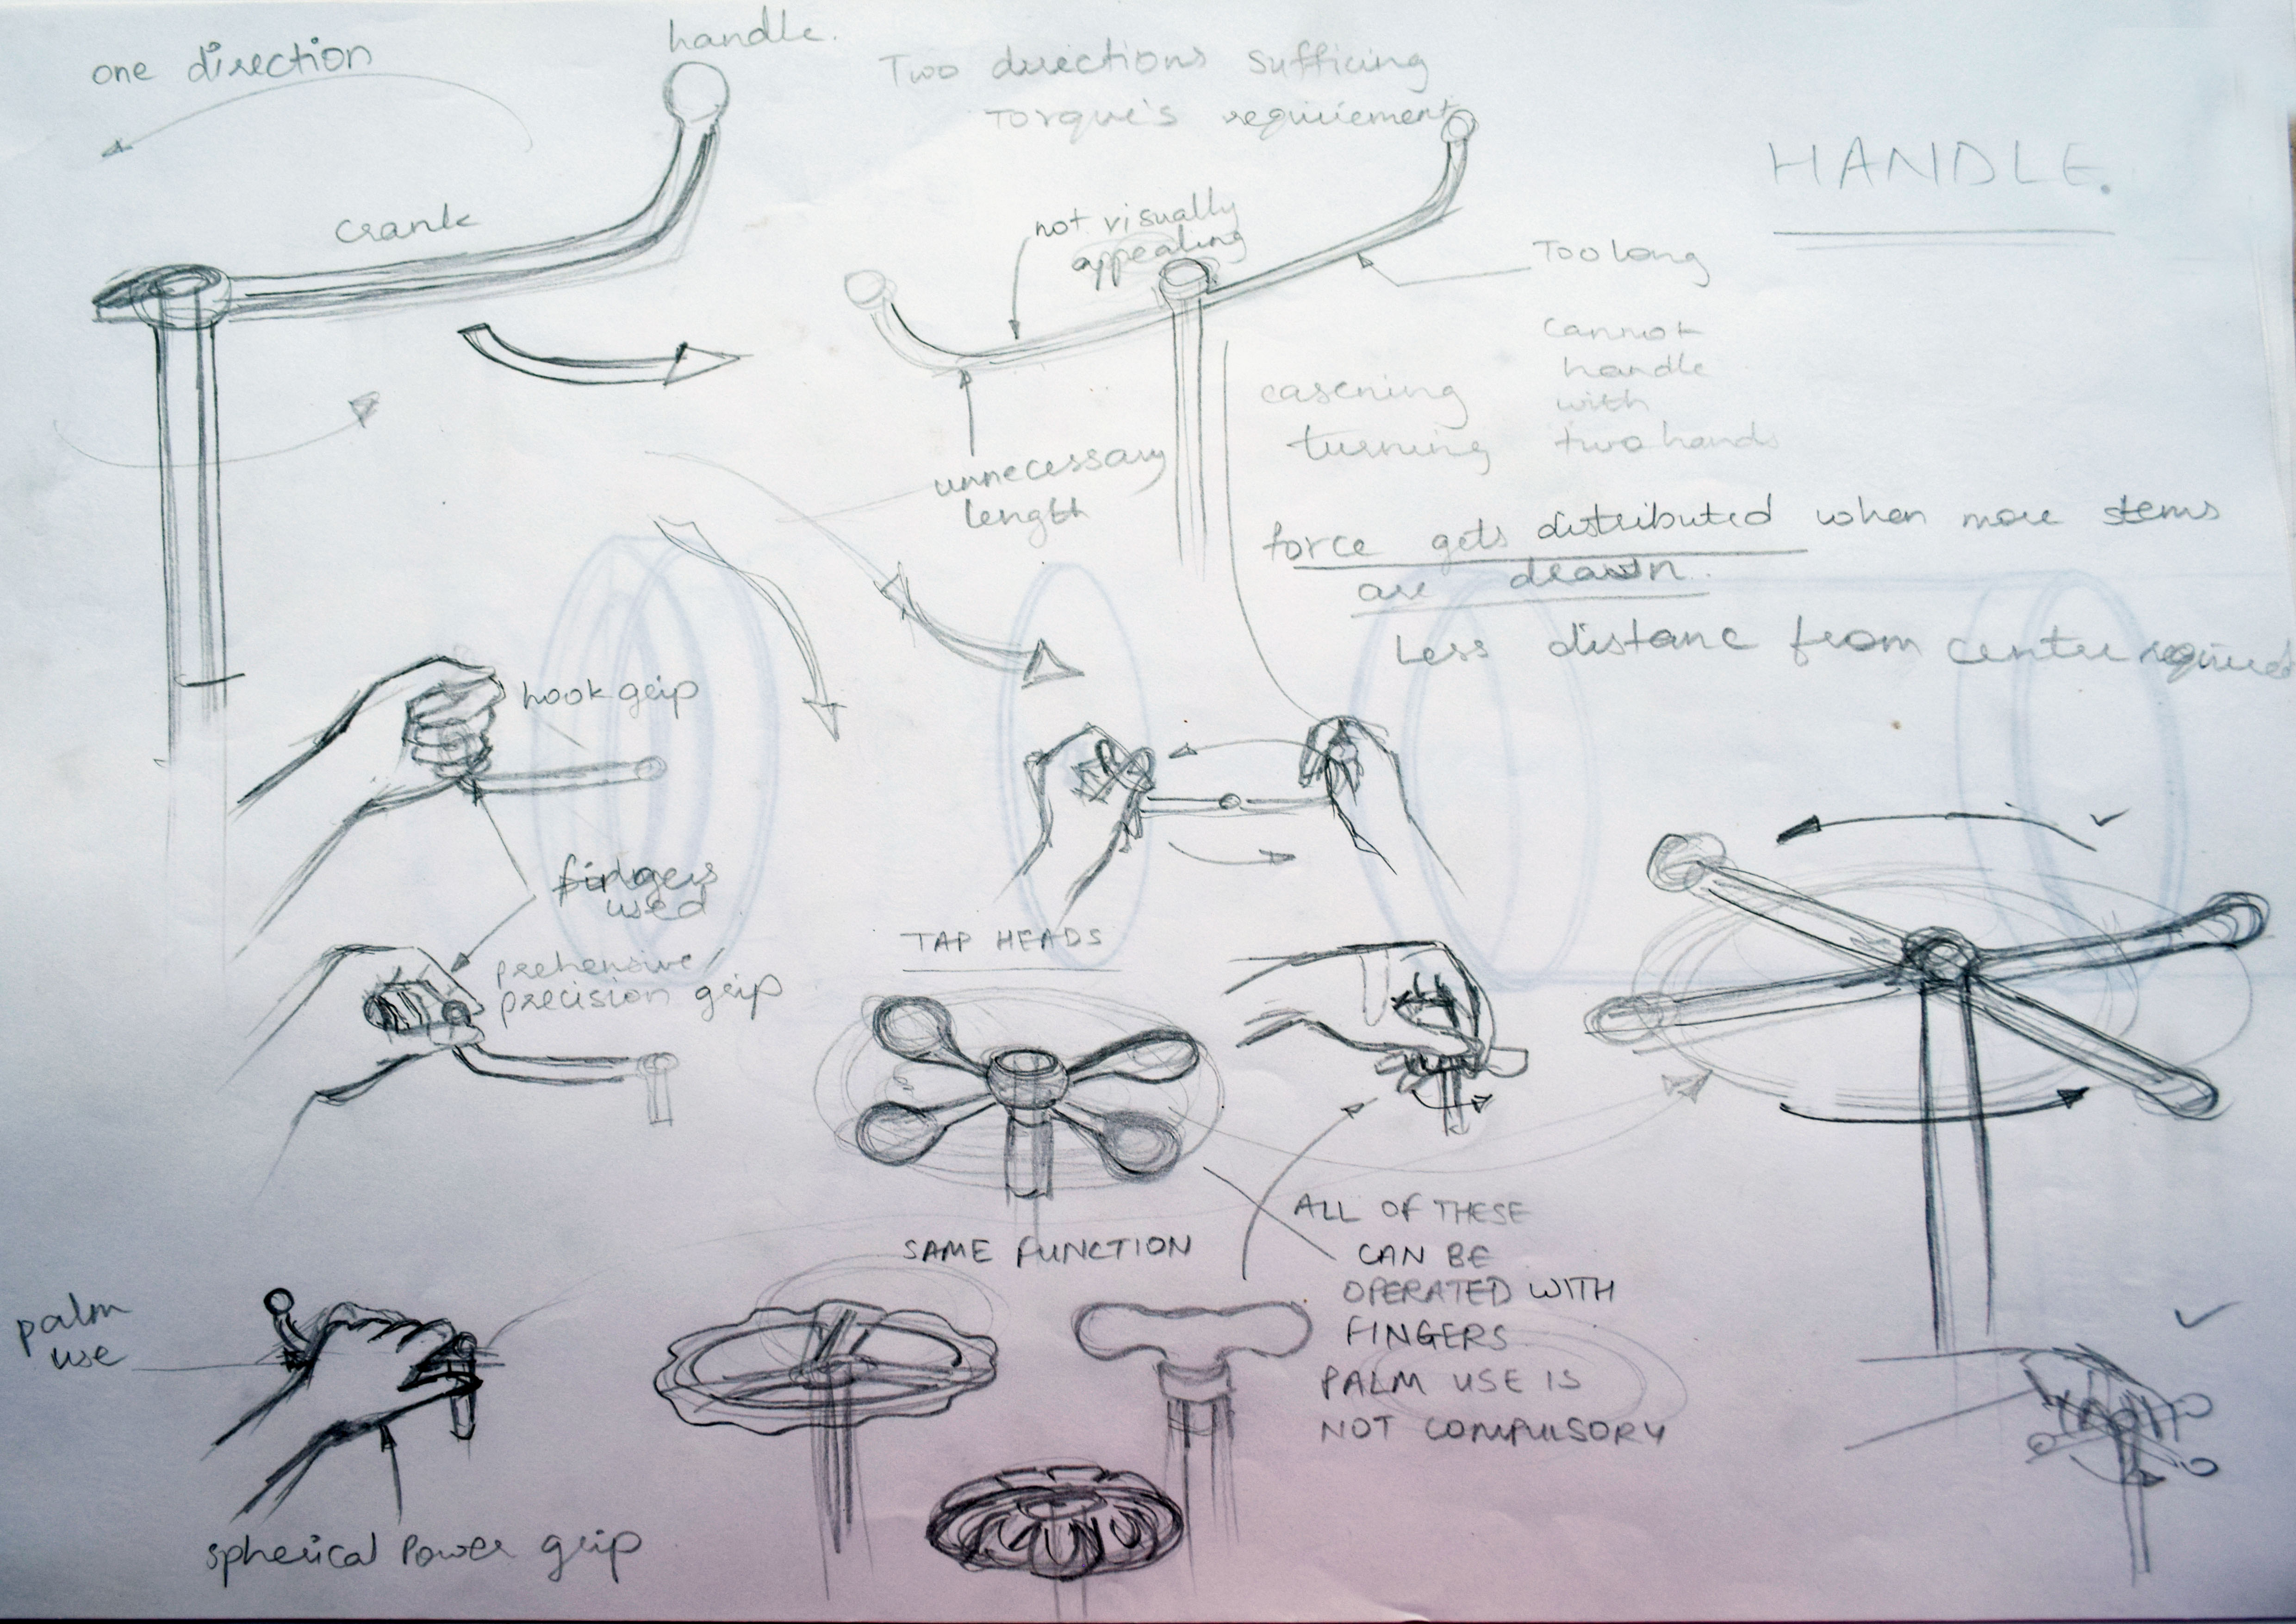 one direction
handle.
Two directions sufficing
Torque's requirement
HANDLE.
crank
not visually
appealing
Too long
cannot
handle
with
two hands
turning
unnecessary
length
force gets distributed when more stems
are drawn.
Less distance from centre required
hook grip
fingers
used
prehensive/
precision grip
TAP HEADS
SAME FUNCTION
ALL OF THESE
CAN BE
OPERATED WITH
FINGERS
PALM USE IS
NOT COMPULSORY
palm
use
spherical Power grip